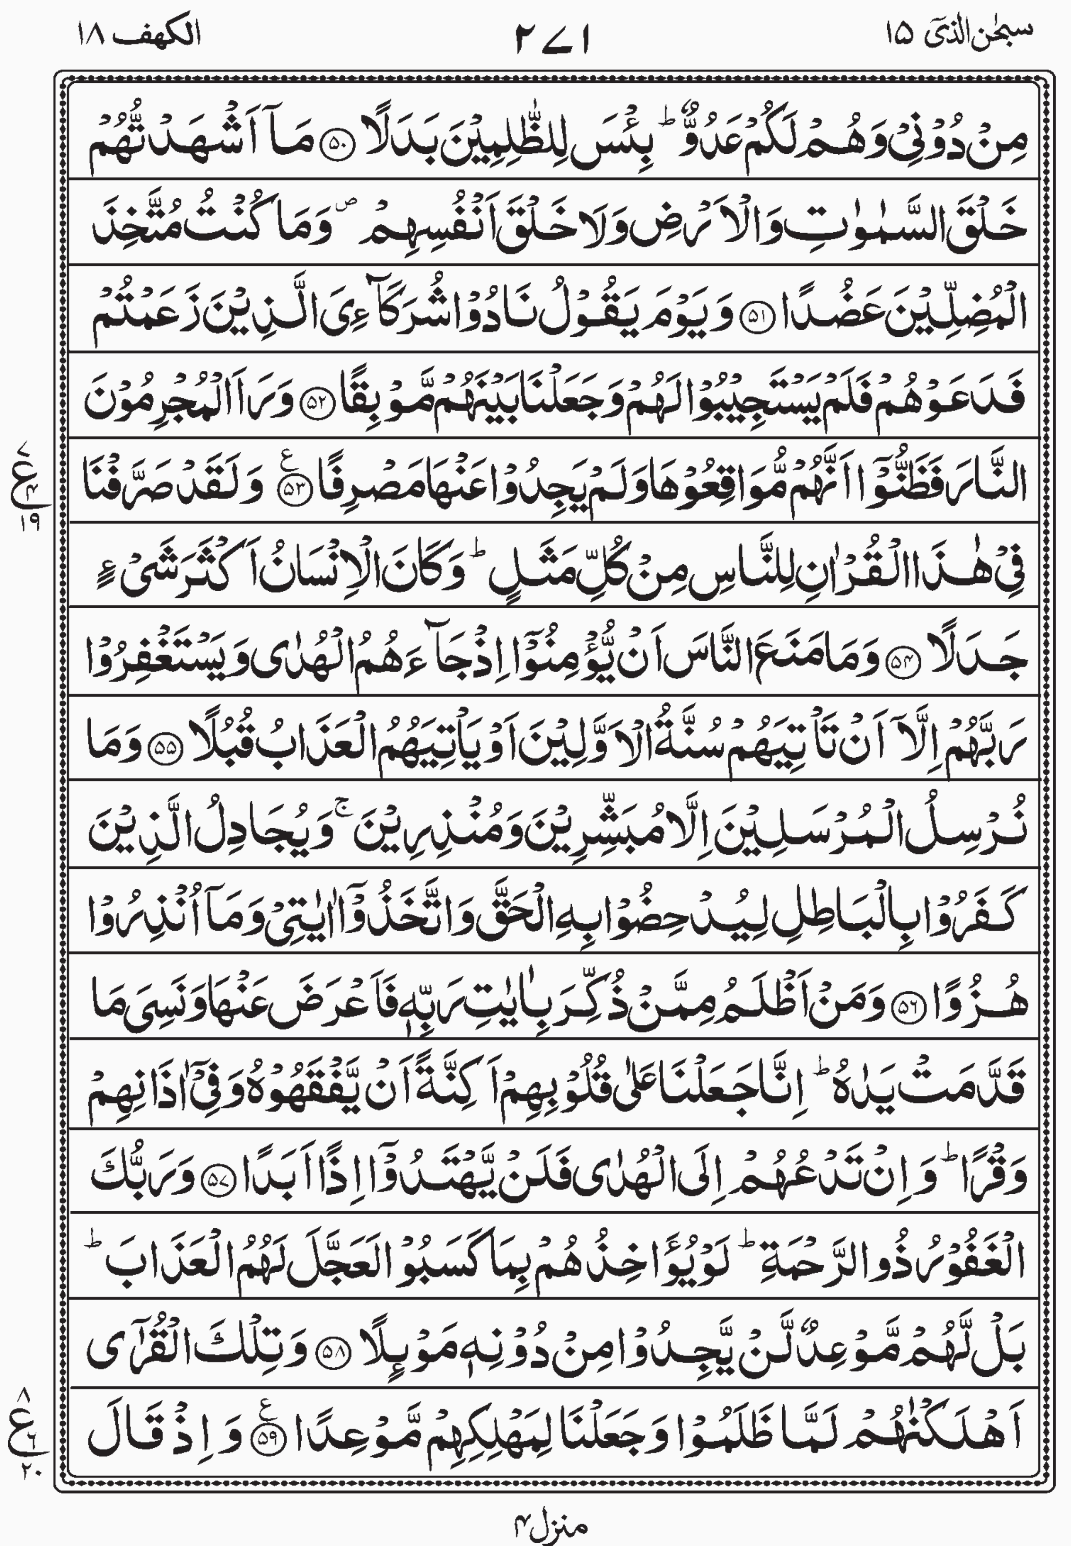 سبحٰن الذیٓ ۱۵
۲۷۱
الکهف ۱۸
مِنْ دُوْنِیْ وَهُمْ لَكُمْ عَدُوٌّ ؕ بِئْسَ لِلظّٰلِمِیْنَ بَدَلًا ﴿۵۰﴾ مَاۤ اَشْهَدْتُّهُمْ
خَلْقَ السَّمٰوٰتِ وَالْاَرْضِ وَلَا خَلْقَ اَنْفُسِهِمْ ۪ وَمَا كُنْتُ مُتَّخِذَ
الْمُضِلِّیْنَ عَضُدًا ﴿۵۱﴾ وَیَوْمَ یَقُوْلُ نَادُوْا شُرَكَآءِیَ الَّذِیْنَ زَعَمْتُمْ
فَدَعَوْهُمْ فَلَمْ یَسْتَجِیْبُوْا لَهُمْ وَجَعَلْنَا بَیْنَهُمْ مَّوْبِقًا ﴿۵۲﴾ وَرَاَ الْمُجْرِمُوْنَ
النَّارَ فَظَنُّوْۤا اَنَّهُمْ مُّوَاقِعُوْهَا وَلَمْ یَجِدُوْا عَنْهَا مَصْرِفًا ﴿۵۳﴾ ع وَلَقَدْ صَرَّفْنَا
۷ ع ۴ ۱۹
فِیْ هٰذَا الْقُرْاٰنِ لِلنَّاسِ مِنْ كُلِّ مَثَلٍ ؕ وَكَانَ الْاِنْسَانُ اَكْثَرَ شَیْءٍ
جَدَلًا ﴿۵۴﴾ وَمَا مَنَعَ النَّاسَ اَنْ یُّؤْمِنُوْۤا اِذْ جَآءَهُمُ الْهُدٰی وَیَسْتَغْفِرُوْا
رَبَّهُمْ اِلَّاۤ اَنْ تَاْتِیَهُمْ سُنَّةُ الْاَوَّلِیْنَ اَوْ یَاْتِیَهُمُ الْعَذَابُ قُبُلًا ﴿۵۵﴾ وَمَا
نُرْسِلُ الْمُرْسَلِیْنَ اِلَّا مُبَشِّرِیْنَ وَمُنْذِرِیْنَ ۚ وَیُجَادِلُ الَّذِیْنَ
كَفَرُوْا بِالْبَاطِلِ لِیُدْحِضُوْا بِهِ الْحَقَّ وَاتَّخَذُوْۤا اٰیٰتِیْ وَمَاۤ اُنْذِرُوْا
هُزُوًا ﴿۵۶﴾ وَمَنْ اَظْلَمُ مِمَّنْ ذُكِّرَ بِاٰیٰتِ رَبِّهٖ فَاَعْرَضَ عَنْهَا وَنَسِیَ مَا
قَدَّمَتْ یَدٰهُ ؕ اِنَّا جَعَلْنَا عَلٰی قُلُوْبِهِمْ اَكِنَّةً اَنْ یَّفْقَهُوْهُ وَفِیْۤ اٰذَانِهِمْ
وَقْرًا ؕ وَاِنْ تَدْعُهُمْ اِلَی الْهُدٰی فَلَنْ یَّهْتَدُوْۤا اِذًا اَبَدًا ﴿۵۷﴾ وَرَبُّكَ
الْغَفُوْرُ ذُو الرَّحْمَةِ ؕ لَوْ یُؤَاخِذُهُمْ بِمَا كَسَبُوْا لَعَجَّلَ لَهُمُ الْعَذَابَ ؕ
بَلْ لَّهُمْ مَّوْعِدٌ لَّنْ یَّجِدُوْا مِنْ دُوْنِهٖ مَوْىِٕلًا ﴿۵۸﴾ وَتِلْكَ الْقُرٰۤی
اَهْلَكْنٰهُمْ لَمَّا ظَلَمُوْا وَجَعَلْنَا لِمَهْلِكِهِمْ مَّوْعِدًا ﴿۵۹﴾ ع وَاِذْ قَالَ
۸ ع ۶ ۲۰
منزل ۴